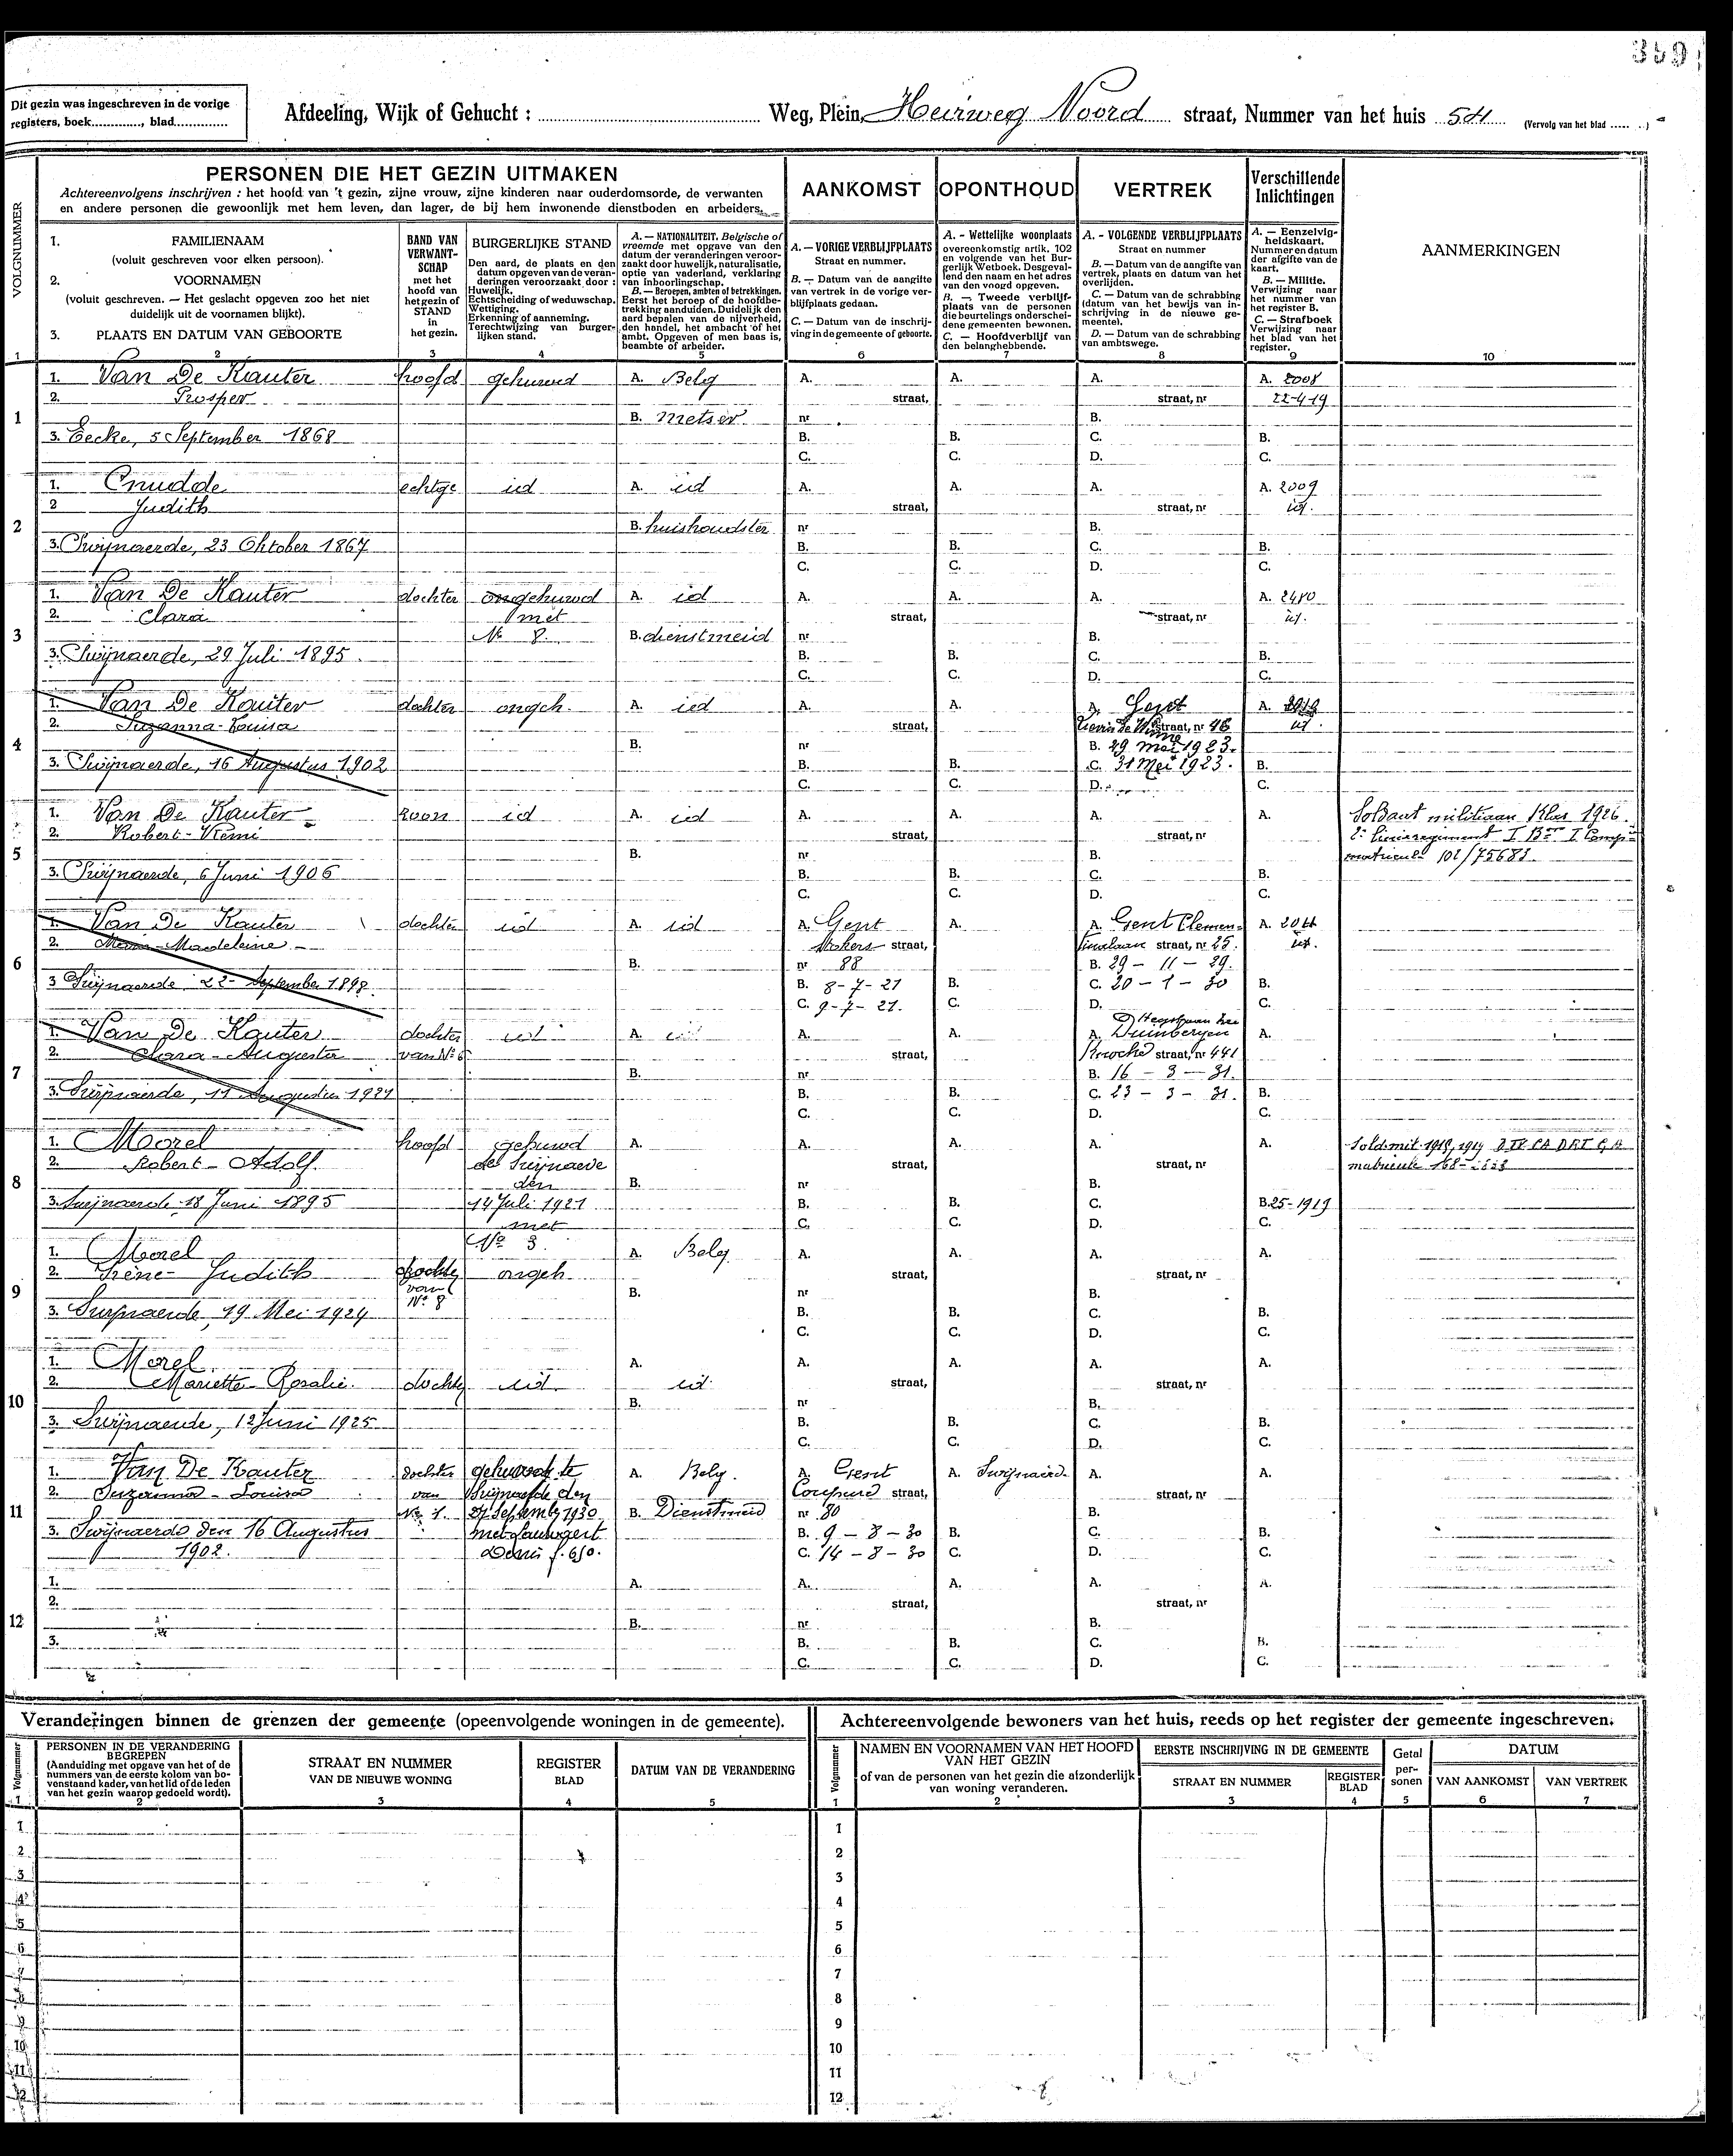 359
Dit gezin was ingeschreven in de vorige
registers, boek............, blad.............
Afdeeling, Wijk of Gehucht : ........ Weg, Plein, Heirweg Noord straat, Nummer van het huis 54 (Vervolg van het blad ..... ..)
PERSONEN DIE HET GEZIN UITMAKEN
Achtereenvolgens inschrijven : het hoofd van 't gezin, zijne vrouw, zijne kinderen naar ouderdomsorde, de verwanten
en andere personen die gewoonlijk met hem leven, dan lager, de bij hem inwonende dienstboden en arbeiders.
AANKOMST
OPONTHOUD
VERTREK
Verschillende
Inlichtingen
AANMERKINGEN
VOLGNUMMER
1. FAMILIENAAM
(voluit geschreven voor elken persoon).
2. VOORNAMEN
(voluit geschreven. — Het geslacht opgeven zoo het niet
duidelijk uit de voornamen blijkt).
3. PLAATS EN DATUM VAN GEBOORTE
BAND VAN
VERWANT-
SCHAP
met het
hoofd van
het gezin of
STAND
in
het gezin.
BURGERLIJKE STAND
Den aard, de plaats en den
datum opgeven van de veran-
deringen veroorzaakt door :
Huwelijk.
Echtscheiding of weduwschap.
Wettiging.
Erkenning of aanneming.
Terechtwijzing van burger-
lijken stand.
A. — NATIONALITEIT, Belgische of
vreemde met opgave van den
datum der veranderingen veroor-
zaakt door huwelijk, naturalisatie,
optie van vaderland, verklaring
van inboorlingschap.
B. — Beroepen, ambten of betrekkingen.
Eerst het beroep of de hoofdbe-
trekking aanduiden. Duidelijk den
aard bepalen van de nijverheid,
den handel, het ambacht of het
ambt. Opgeven of men baas is,
beambte of arbeider.
A. — VORIGE VERBLIJFPLAATS
Straat en nummer.
B. — Datum van de aangifte
van vertrek in de vorige ver-
blijfplaats gedaan.
C. — Datum van de inschrij-
ving in de gemeente of geboorte.
A. - Wettelijke woonplaats
overeenkomstig artik. 102
en volgende van het Bur-
gerlijk Wetboek. Desgeval-
lend den naam en het adres
van den voogd opgeven.
B. — Tweede verblijf-
plaats van de personen
die beurtelings onderschei-
dene gemeenten bewonen.
C. — Hoofdverblijf van
den belanghebbende.
A. - VOLGENDE VERBLIJFPLAATS
Straat en nummer
B. — Datum van de aangifte van
vertrek, plaats en datum van het
overlijden.
C. — Datum van de schrabbing
(datum van het bewijs van in-
schrijving in de nieuwe ge-
meente).
D. — Datum van de schrabbing
van ambtswege.
A. — Eenzelvig-
heidskaart.
Nummer en datum
der afgifte van de
kaart.
B. — Militie.
Verwijzing naar
het nummer van
het register B.
C. — Strafboek
Verwijzing naar
het blad van het
register.
1 2 3 4 5 6 7 8 9 10
1. Van De Kauter hoofd gehuwd A. Belg A. A. A. A. 2008
2. Prosper straat, straat, nr 22-4-19
1 B. metser nr B.
3. Eecke, 5 September 1868 B. B. C. B.
C. C. D. C.
1. Cnudde echtge id A. id A. A. A. A. 2009
2 Judith straat, straat, nr id.
2 B. huishoudster nr B.
3. Swijnaerde, 23 Oktober 1867 B. B. C. B.
C. C. D. C.
1. Van De Kauter dochter ongehuwd A. id A. A. A. A. 2480
2. Clara met straat, straat, nr id.
3 No 8. B. dienstmeid nr B.
3. Swijnaerde, 29 Juli 1895. B. B. C. B.
C. C. D. C.
1. Van De Kauter dochter ongeh. A. id A. A. A. Gent A.
2. Suzanna-Louisa straat, straat, nr 46 id.
4 B. nr B. 29 mei 1923.
3. Swijnaerde, 16 Augustus 1902 B. B. C. 31 Mei 1923. B.
C. C. D. C.
1. Van De Kauter zoon id A. id A. A. A. A. Soldaat militiaan Klas 1926.
2. Robert-Remi straat, straat, nr 2e Linieregiment I Bon I Comp
5 B. nr B. matricul 102/75683.
3. Swijnaerde, 6 Juni 1906 B. B. C. B.
C. C. D. C.
1. Van De Kauter dochter id A. id A. Gent A. A. Gent Clemen- A.
2. Maria-Madeleine straat, tinalaan straat, nr 25. id.
6 B. nr 88 B. 29 - 11 - 29.
3 Swijnaerde 22 September 1898. B. 8-7-21 B. C. 20 - 1 - 30 B.
C. 9-7-21. C. D. C.
1. Van De Kauter dochter id A. id A. A. A. Duinbergen A.
2. Clara-Augusta van No 6 straat, straat, nr 441
7 B. nr B. 16 - 3 - 31.
3. Swijnaerde, 11 Augustus 1921 B. B. C. 23 - 3 - 31. B.
C. C. D. C.
1. Morel hoofd gehuwd A. A. A. A. A.
2. Robert-Adolf. Swijnaerde straat, straat, nr
8 den B. nr B.
3. Swijnaerde 18 Juni 1895 14 Juli 1921 B. B. C. B. 25-1919
met C. C. D. C.
No 3.
1. Morel A. Belg A. A. A. A.
2. Irène-Judith dochter ongeh. straat, straat, nr
9 van No 8 B. nr B.
3. Swijnaerde, 19 Mei 1924 B. B. C. B.
C. C. D. C.
1. Morel A. A. A. A. A.
2. Mariette-Rosalie. dochter id. id. straat, straat, nr
10 B. nr B.
3. Swijnaerde, 12 Juni 1925 B. B. C. B.
C. C. D. C.
1. Van De Kauter dochter gehuwd te A. Belg. A. Gent A. Swijnaerde A. A.
2. Suzanna-Louisa van Swijnaerde den Coupure straat, straat, nr
11 No 1. 27 September 1930 B. Dienstmeid nr 80 B.
3. Swijnaerde den 16 Augustus B. 9 - 8 - 30 B. C. B.
1902. C. 14 - 8 - 30 C. D. C.
1. A. A. A. A. A.
2. straat, straat, nr
12 B. nr B.
3. B. B. C. B.
C. C. D. C.
Veranderingen binnen de grenzen der gemeente (opeenvolgende woningen in de gemeente).
Volgnummer
PERSONEN IN DE VERANDERING
BEGREPEN
(Aanduiding met opgave van het of de
nummers van de eerste kolom van bo-
venstaand kader, van het lid of de leden
van het gezin waarop gedoeld wordt).
STRAAT EN NUMMER
VAN DE NIEUWE WONING
REGISTER
BLAD
DATUM VAN DE VERANDERING
1 2 3 4 5
1
2
3
4
5
6
7
8
9
10
11
12
Achtereenvolgende bewoners van het huis, reeds op het register der gemeente ingeschreven.
Volgnummer
NAMEN EN VOORNAMEN VAN HET HOOFD
VAN HET GEZIN
of van de personen van het gezin die afzonderlijk
van woning veranderen.
EERSTE INSCHRIJVING IN DE GEMEENTE
STRAAT EN NUMMER
REGISTER
BLAD
Getal
per-
sonen
DATUM
VAN AANKOMST
VAN VERTREK
1 2 3 4 5 6 7
1
2
3
4
5
6
7
8
9
10
11
12